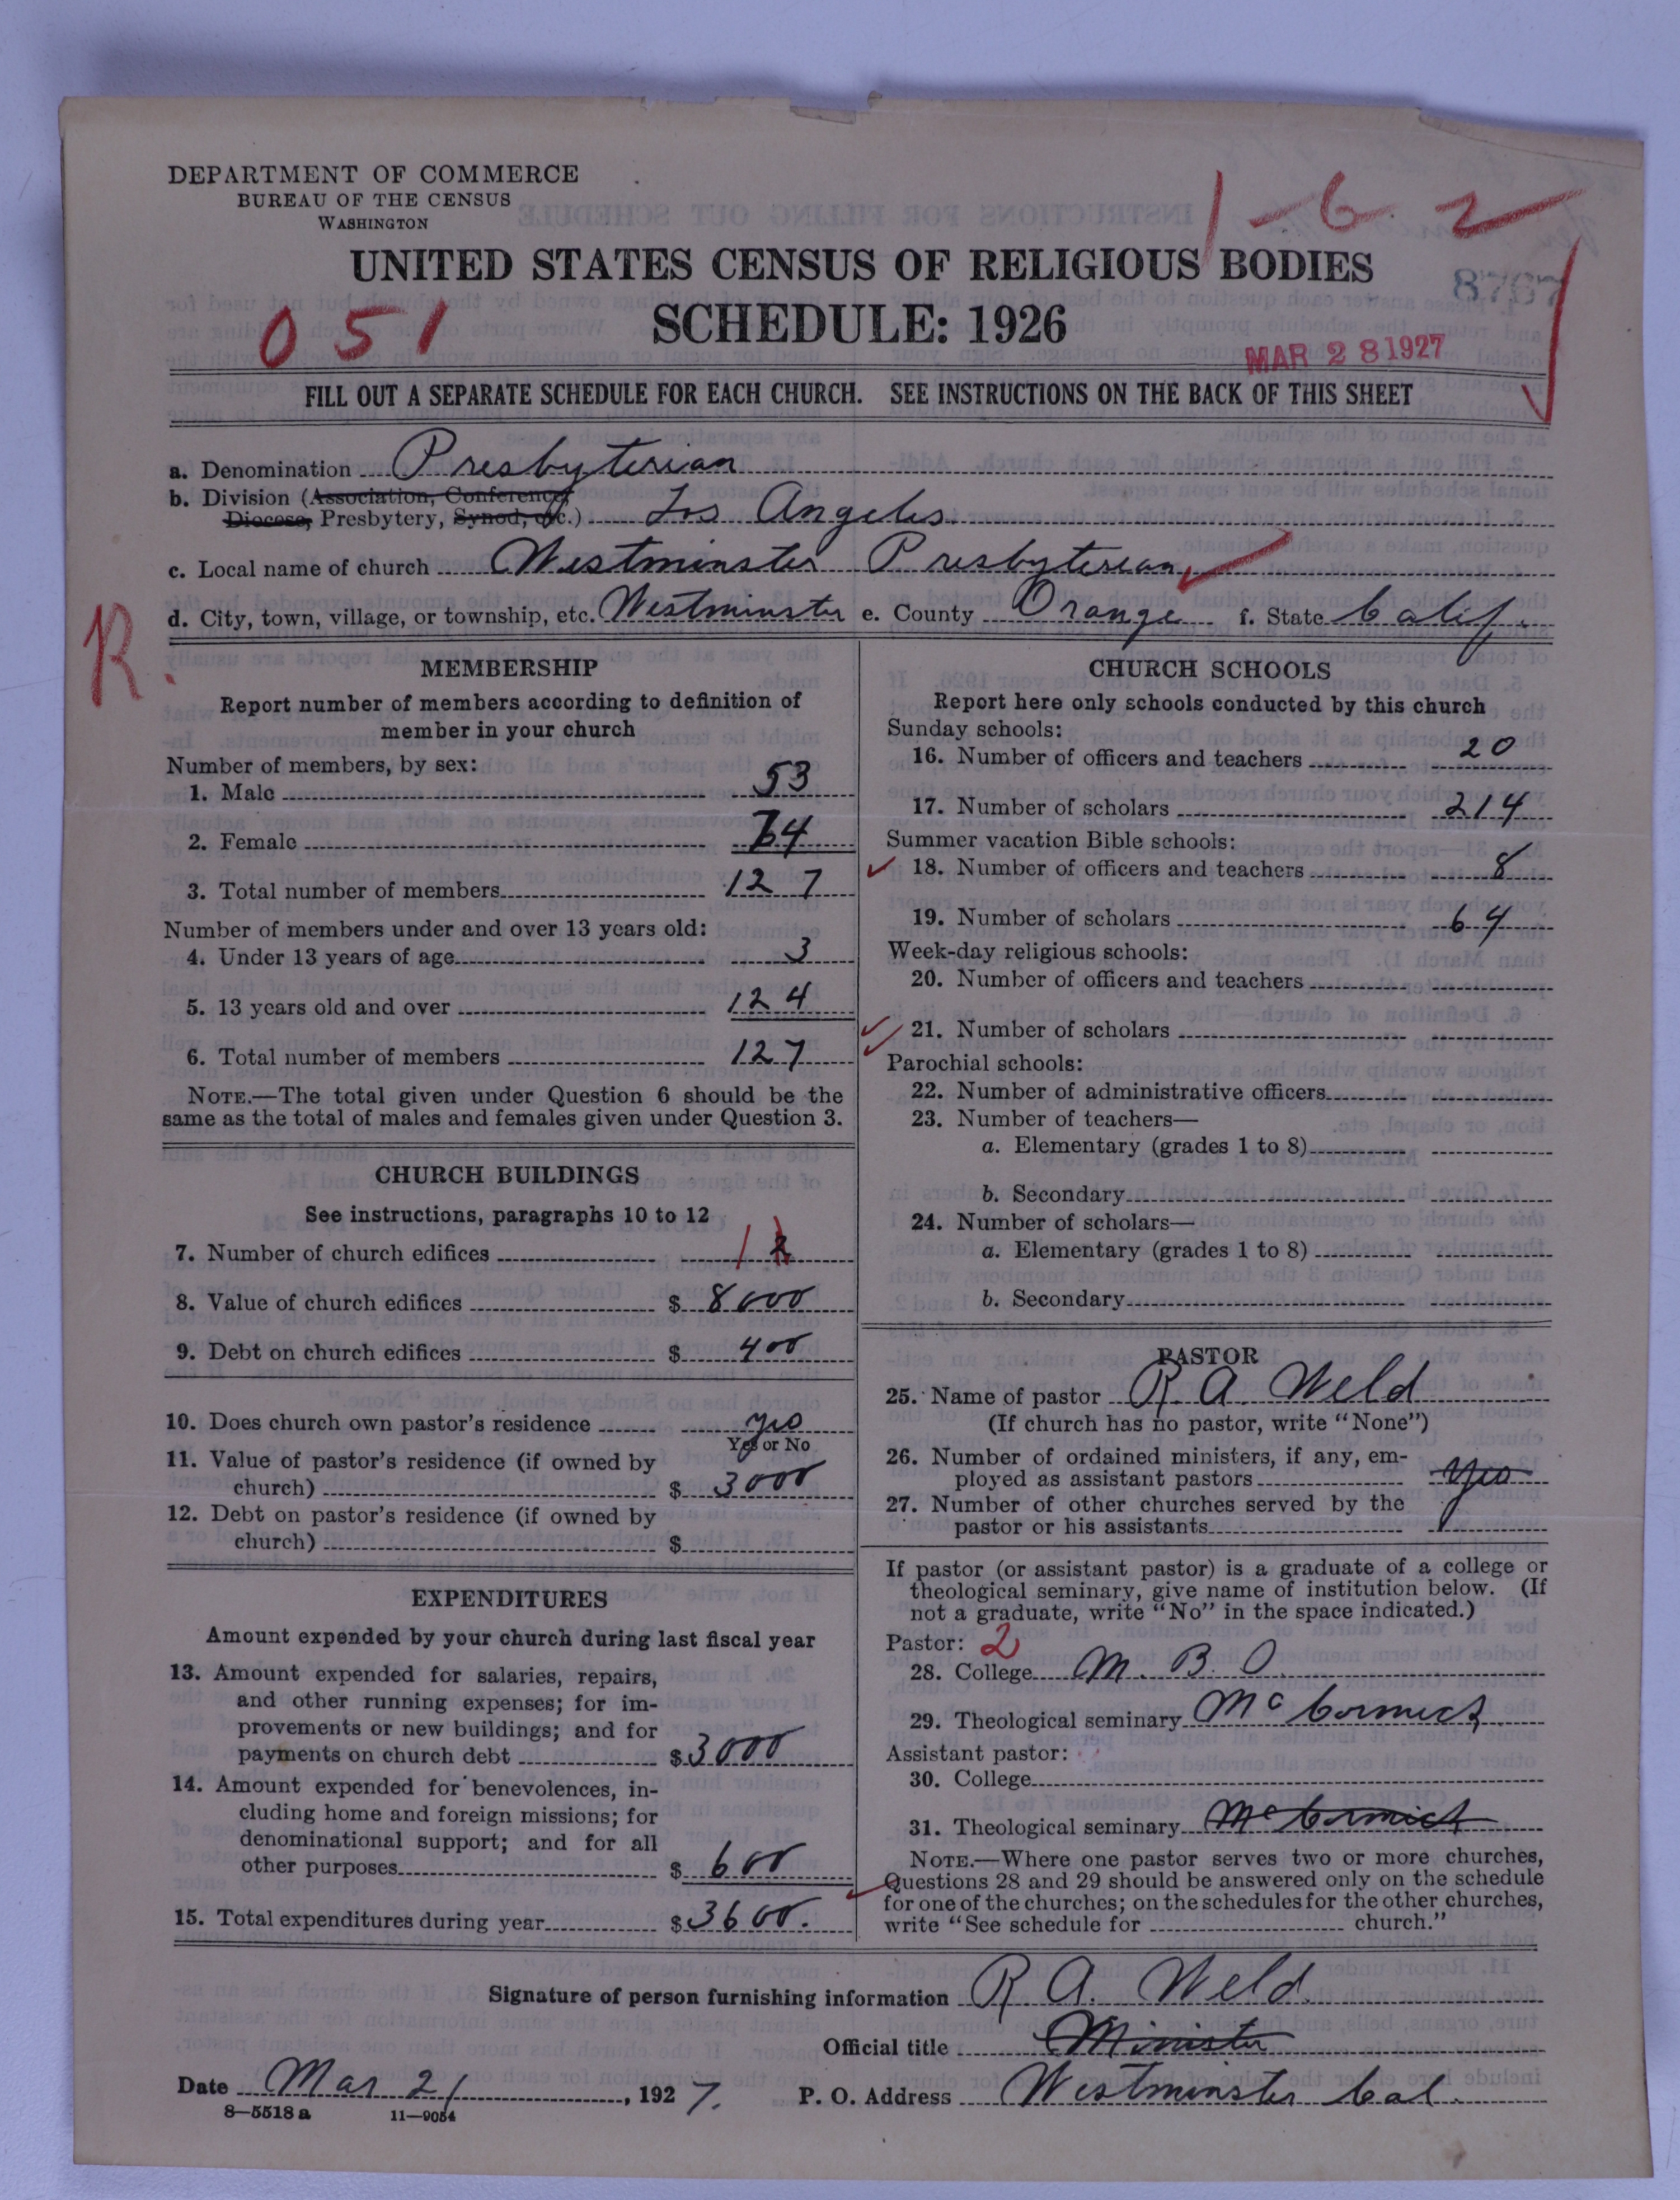 DEPARTMENT OF COMMERCE
BUREAU OF THE CENSUS
WASHINGTON
1-6 2
UNITED STATES CENSUS OF RELIGIOUS BODIES
8767
051
SCHEDULE: 1926
MAR 28 1927
FILL OUT A SEPARATE SCHEDULE FOR EACH CHURCH. SEE INSTRUCTIONS ON THE BACK OF THIS SHEET
a. Denomination Presbyterian
b. Division (Association, Conference,
Diocese, Presbytery, Synod, etc.) Los Angeles
c. Local name of church Westminster Presbyterian
d. City, town, village, or township, etc. Westminster e. County Orange f. State Calif.
R.
MEMBERSHIP
Report number of members according to definition of
member in your church
Number of members, by sex:
1. Male 53
2. Female 74
3. Total number of members 127
Number of members under and over 13 years old:
4. Under 13 years of age 3
5. 13 years old and over 124
6. Total number of members 127
NOTE.—The total given under Question 6 should be the
same as the total of males and females given under Question 3.
CHURCH BUILDINGS
See instructions, paragraphs 10 to 12
7. Number of church edifices 1 2
8. Value of church edifices $ 8000
9. Debt on church edifices $ 400
10. Does church own pastor's residence yes
Yes or No
11. Value of pastor's residence (if owned by
church) $ 3000
12. Debt on pastor's residence (if owned by
church) $
EXPENDITURES
Amount expended by your church during last fiscal year
13. Amount expended for salaries, repairs,
and other running expenses; for im-
provements or new buildings; and for
payments on church debt $ 3000
14. Amount expended for benevolences, in-
cluding home and foreign missions; for
denominational support; and for all
other purposes $ 600
15. Total expenditures during year $ 3600.
CHURCH SCHOOLS
Report here only schools conducted by this church
Sunday schools:
16. Number of officers and teachers 20
17. Number of scholars 214
Summer vacation Bible schools:
18. Number of officers and teachers 8
19. Number of scholars 64
Week-day religious schools:
20. Number of officers and teachers
21. Number of scholars
Parochial schools:
22. Number of administrative officers
23. Number of teachers—
a. Elementary (grades 1 to 8)
b. Secondary
24. Number of scholars—
a. Elementary (grades 1 to 8)
b. Secondary
PASTOR
25. Name of pastor R. A. Weld
(If church has no pastor, write "None")
26. Number of ordained ministers, if any, em-
ployed as assistant pastors yes
27. Number of other churches served by the
pastor or his assistants
If pastor (or assistant pastor) is a graduate of a college or
theological seminary, give name of institution below. (If
not a graduate, write "No" in the space indicated.)
Pastor: 2
28. College M. B. O.
29. Theological seminary McCormick
Assistant pastor:
30. College
31. Theological seminary McCormick
NOTE.—Where one pastor serves two or more churches,
Questions 28 and 29 should be answered only on the schedule
for one of the churches; on the schedules for the other churches,
write "See schedule for church."
Signature of person furnishing information R A. Weld
Official title Minister
Date Mar 21, 1927. P. O. Address Westminster Cal.
8—5518 a 11—9054